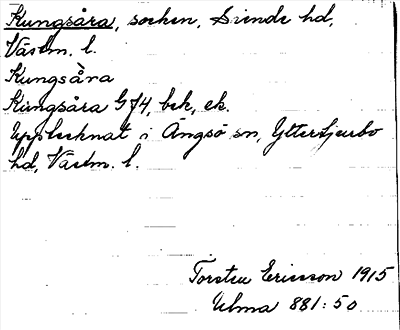 Kungsåra, socken, Siende hd,
Västm. l.
Kungsåra
Kungsåra G74, bck, ek.
Upptecknat i Ängsö sn, Yttertjurbo
hd, Västm. l.
Torsten Ericsson 1915
Ulma 881:50